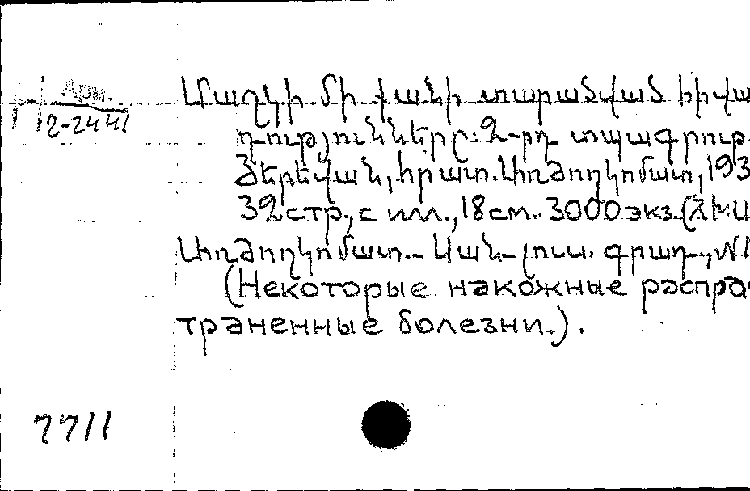 Арм.
2-2441
Մաշկի մի քանի տարածված հիվա
դություններ: 2-րդ տպագրութ.
Երևան, հրատ. Առժողկոմատ, 193
32 стр., с илл., 18 см. 3000 экз. (ՀԽՍ
Առժողկոմատ.- Սան-լուս. գրադ., №
(Некоторые накожные распро-
траненные болезни.).
7711